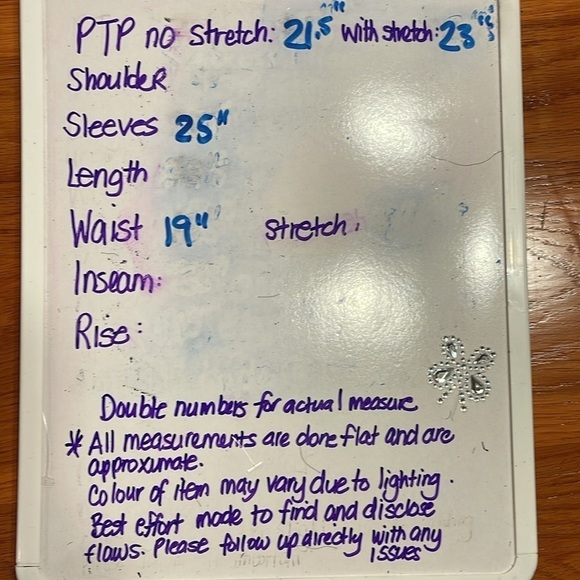 PTP no stretch: 21.5" with stretch: 23"
Shoulder
Sleeves 25"
Length
Waist 19" stretch:
Inseam:
Rise:
Double numbers for actual measure
* All measurements are done flat and are
approximate.
Colour of item may vary due to lighting.
Best effort made to find and disclose
flaws. Please follow up directly with any
issues